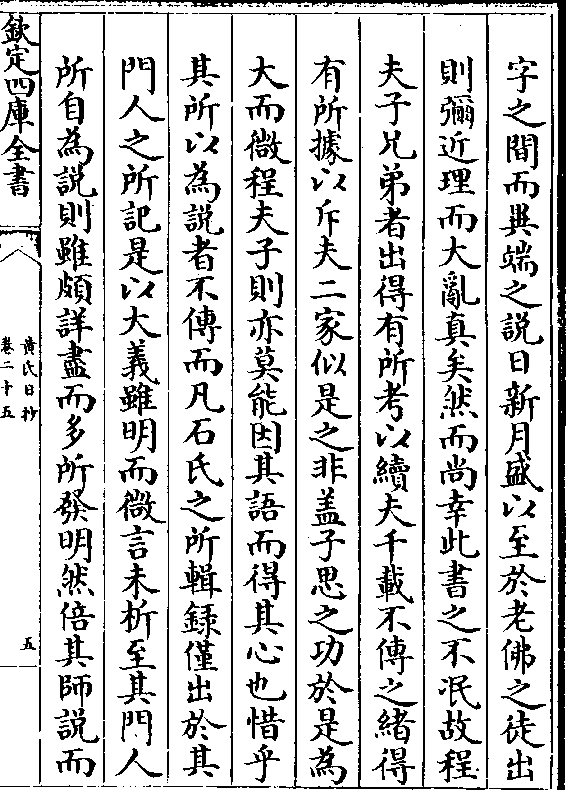 字之間而異端之說日新月盛以至於老佛之徒出
則彌近理而大亂真矣然而尚幸此書之不泯故程
夫子兄弟者出得有所考以續夫千載不傳之緒得
有所據以斥夫二家似是之非盖子思之功於是為
大而微程夫子則亦莫能因其語而得其心也惜乎
其所以為說者不傳而凡石氏之所輯録僅出於其
門人之所記是以大義雖明而微言未析至其門人
所自為說則雖頗詳盡而多所發明然倍其師說而
欽定四庫全書
黄氏日抄
卷二十五
五